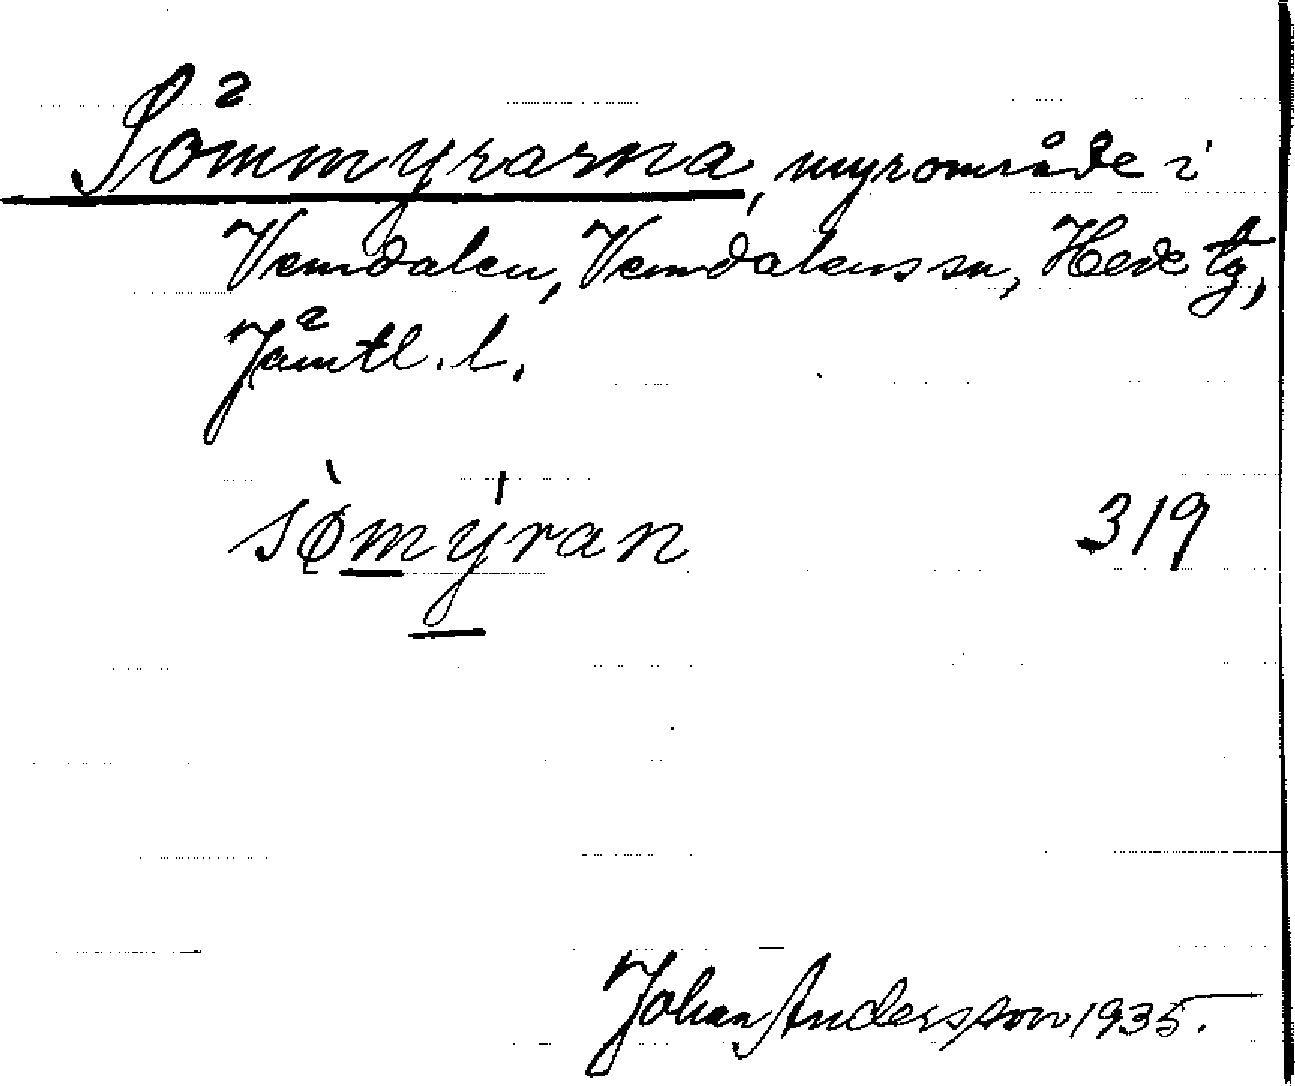 Sömmyrarna, myrområde i
Vemdalen, Vemdalens sn, Hede tg,
Jämtl. l.
sømyran 319
Johan Andersson 1935.